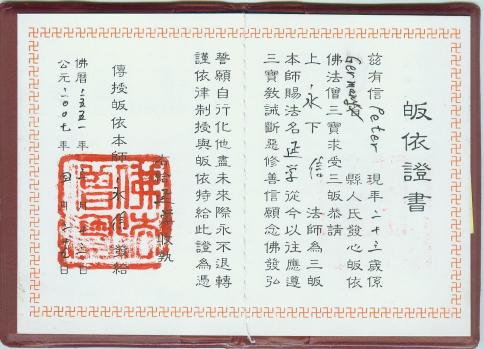 皈依證書
茲有信 Peter 現年二十三歲係
Germany 縣人氏發心皈依
佛法僧三寶求受三皈恭請
上永下信 法師為三皈
本師賜法名延学從今以往應遵
三寶教誡斷惡修善信願念佛發弘
誓願自行化他盡未來際永不退轉
謹依律制授與皈依特給此證為憑
收執
傳授皈依本師永信 給
佛曆二五五一年 月 日
公元二00七年 月 日